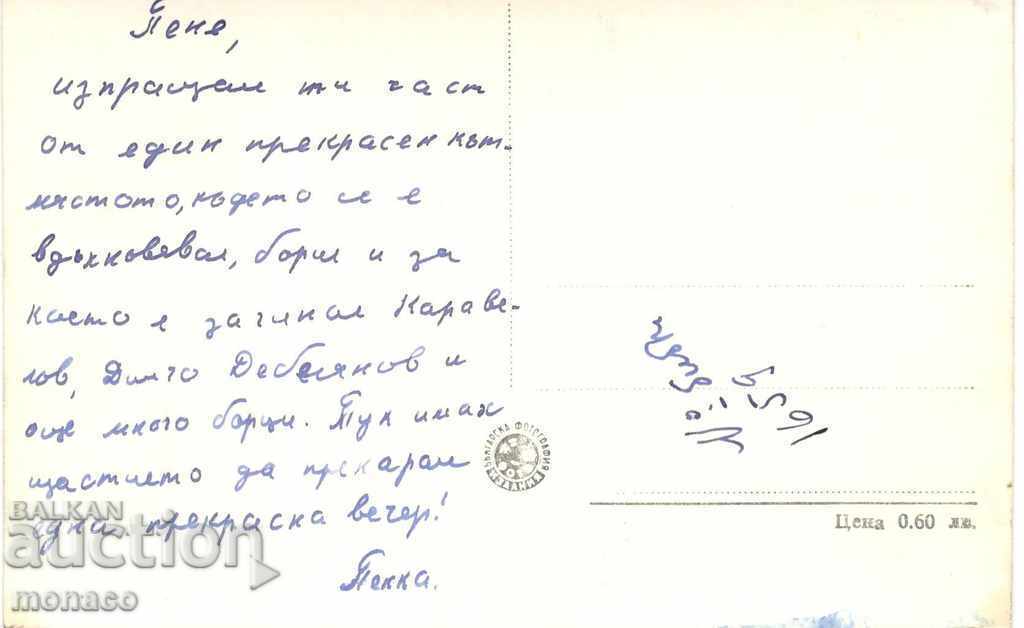 Пене,
изпращам ти част
от един прекрасен кът-
мястото, където се е
вдъхновявал, борил и за
което е загинал Караве-
лов, Димчо Дебелянов и
още много борци. Тук имах
щастието да прекарам
една прекрасна вечер!
Пенка.
БЪЛГАРСКА ФОТОГРАФИЯ
Цена 0.60 лв.
BALKAN
auction
monaco